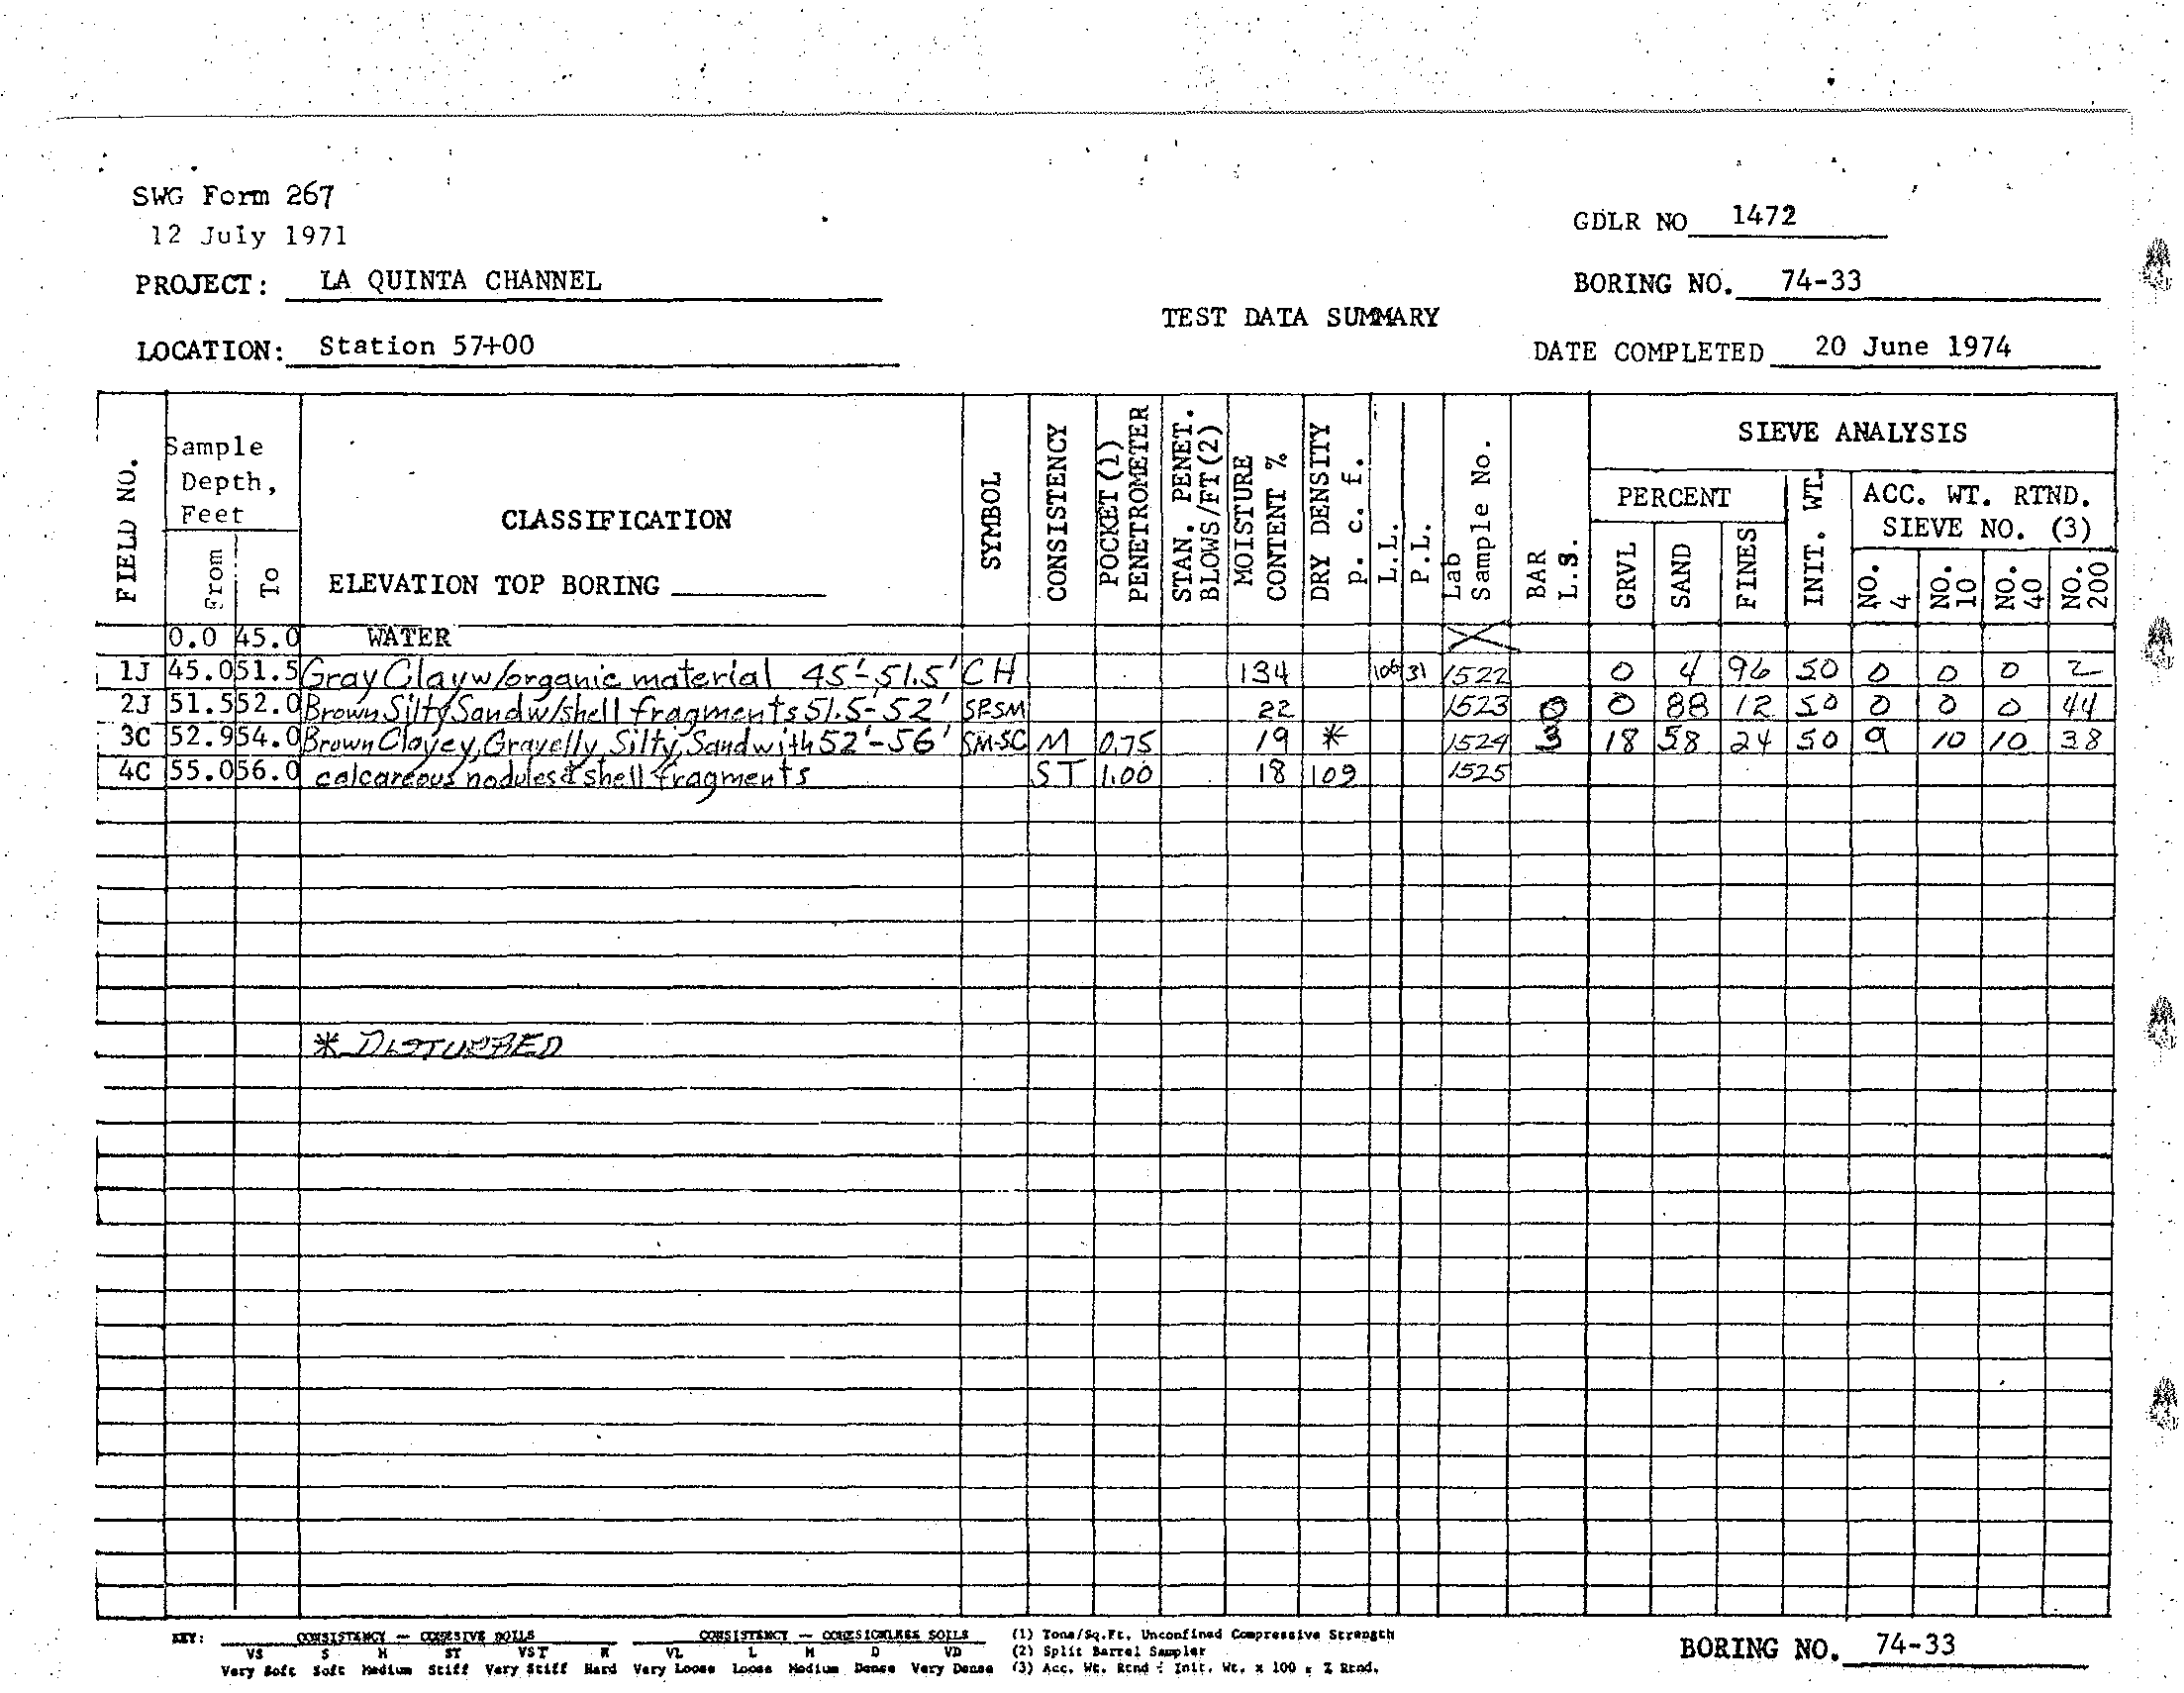 SWG Form 267
12 July 1971
GDLR NO 1472
PROJECT: LA QUINTA CHANNEL
BORING NO. 74-33
TEST DATA SUMMARY
LOCATION: Station 57+00
DATE COMPLETED 20 June 1974
FIELD NO.
Sample Depth, Feet
From
To
CLASSIFICATION
ELEVATION TOP BORING
SYMBOL
CONSISTENCY
POCKET (1) PENETROMETER
STAN. PENET. BLOWS/FT (2)
MOISTURE CONTENT %
DRY DENSITY p. c. f.
L.L.
P.L.
Lab Sample No.
BAR L.S.
SIEVE ANALYSIS
PERCENT
GRVL
SAND
FINES
INIT. WT.
ACC. WT. RTND.
SIEVE NO. (3)
NO. 4
NO. 10
NO. 40
NO. 200
0.0 45.0 WATER
1J 45.0 51.5 Gray Clay w/organic material 45'-51.5' CH 134 106 31 1522 0 4 96 50 0 0 0 2
2J 51.5 52.0 Brown Silty Sand w/shell fragments 51.5-52' SP-SM 22 1523 0 0 88 12 50 0 0 0 44
3C 52.9 54.0 Brown Clayey, Gravelly, Silty, Sand with 52'-56' SM-SC M 0.75 19 * 1524 3 18 58 24 50 9 10 10 38
4C 55.0 56.0 calcareous nodules & shell fragments ST 1.00 18 109 1525
* DISTURBED
KEY: CONSISTENCY — COHESIVE SOILS CONSISTENCY — COHESIONLESS SOILS (1) Tons/Sq.Ft. Unconfined Compressive Strength
VS S M ST VST H VL L M D VD (2) Split Barrel Sampler
Very Soft Soft Medium Stiff Very Stiff Hard Very Loose Loose Medium Dense Very Dense (3) Acc. Wt. Rtnd ÷ Init. Wt. x 100 = % Rtnd.
BORING NO. 74-33